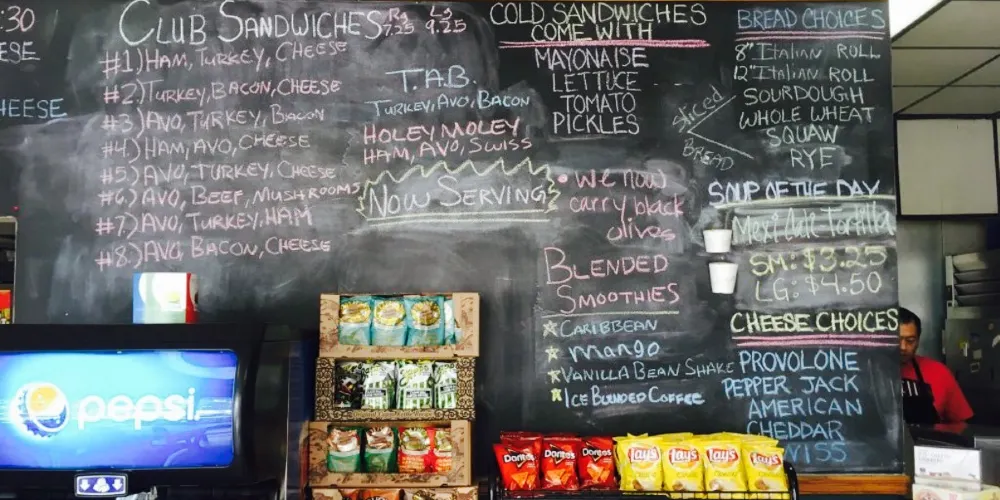 :30
ESE
HEESE
CLUB SANDWICHES Rg 7.25 Lg 9.25
#1) HAM, TURKEY, CHEESE
#2) TURKEY, BACON, CHEESE
#3) AVO, TURKEY, BACON
#4) HAM, AVO, CHEESE
#5) AVO, TURKEY, CHEESE
#6) AVO, BEEF, MUSHROOMS
#7) AVO, TURKEY, HAM
#8) AVO, BACON, CHEESE
T.A.B.
TURKEY, AVO, BACON
HOLEY MOLEY
HAM, AVO, SWISS
NOW SERVING
COLD SANDWICHES
COME WITH
MAYONAISE
LETTUCE
TOMATO
PICKLES
• we now
carry black
olives
BLENDED
SMOOTHIES
CARIBBEAN
mango
VANILLA BEAN SHAKE
ICE BLENDED COFFEE
BREAD CHOICES
8" ITALIAN ROLL
12" ITALIAN ROLL
SOURDOUGH
WHOLE WHEAT
SQUAW
RYE
sliced
BREAD
SOUP OF THE DAY
Tortilla
SM: $3.25
LG: $4.50
CHEESE CHOICES
PROVOLONE
PEPPER JACK
AMERICAN
CHEDDAR
WISS
pepsi
pepsi.
Doritos
Doritos
Doritos
Lay's
Lay's
Lay's
Lay's